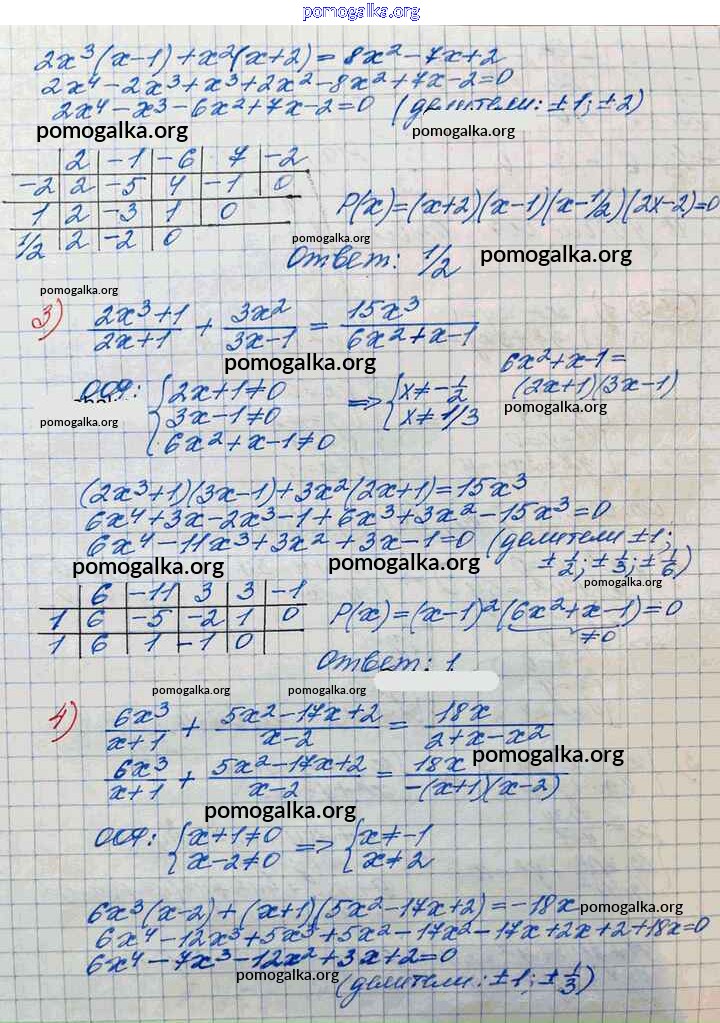 pomogalka.org
2x³(x-1)+x²(x+2)=8x²-7x+2
2x⁴-2x³+x³+2x²-8x²+7x-2=0
2x⁴-x³-6x²+7x-2=0 (делители: ±1; ±2)
pomogalka.org pomogalka.org
2 -1 -6 7 -2
-2 2 -5 4 -1 0
1 2 -3 1 0 P(x)=(x+2)(x-1)(x-1/2)(2x-2)=0
1/2 2 -2 0 pomogalka.org
Ответ: 1/2 pomogalka.org
pomogalka.org
3) (2x³+1)/(2x+1) + 3x²/(3x-1) = 15x³/(6x²+x-1)
pomogalka.org 6x²+x-1=
ОДЗ: {2x+1≠0 => {x≠-1/2 (2x+1)(3x-1)
3x-1≠0 x≠1/3 pomogalka.org
pomogalka.org 6x²+x-1≠0
(2x³+1)(3x-1)+3x²(2x+1)=15x³
6x⁴+3x-2x³-1+6x³+3x²-15x³=0
6x⁴-11x³+3x²+3x-1=0 (делители ±1;
±1/2; ±1/3; ±1/6)
pomogalka.org pomogalka.org pomogalka.org
6 -11 3 3 -1
1 6 -5 -2 1 0 P(x)=(x-1)²(6x²+x-1)=0
1 6 1 -1 0 ≠0
Ответ: 1
pomogalka.org pomogalka.org
4) 6x³/(x+1) + (5x²-17x+2)/(x-2) = 18x/(2+x-x²)
pomogalka.org
6x³/(x+1) + (5x²-17x+2)/(x-2) = 18x/(-(x+1)(x-2))
pomogalka.org
ОДЗ: {x+1≠0 => {x≠-1
x-2≠0 x≠2
6x³(x-2)+(x+1)(5x²-17x+2)=-18x pomogalka.org
6x⁴-12x³+5x³+5x²-17x²-17x+2x+2+18x=0
6x⁴-7x³-12x²+3x+2=0
pomogalka.org (делители: ±1; ±1/3)